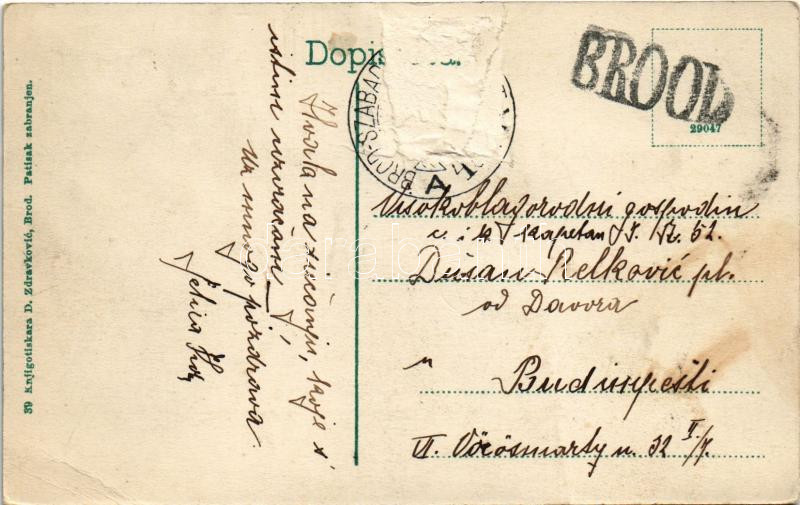 39 Knjigotiskara D. Zdravković, Brod. Patisak zabranjen.
Dopi
BROOD
29047
BROD-SZABAD
A
Hvala na sjećanju, koje i
istim uzvraćam
uz mnogo pozdrava
Jelica
Visokoblagorodni gospodin
c. i k. kapetan
Dušan Relković pl.
od Davora
u Budimpešti
VI. Vörösmarty u. 32 II/7.